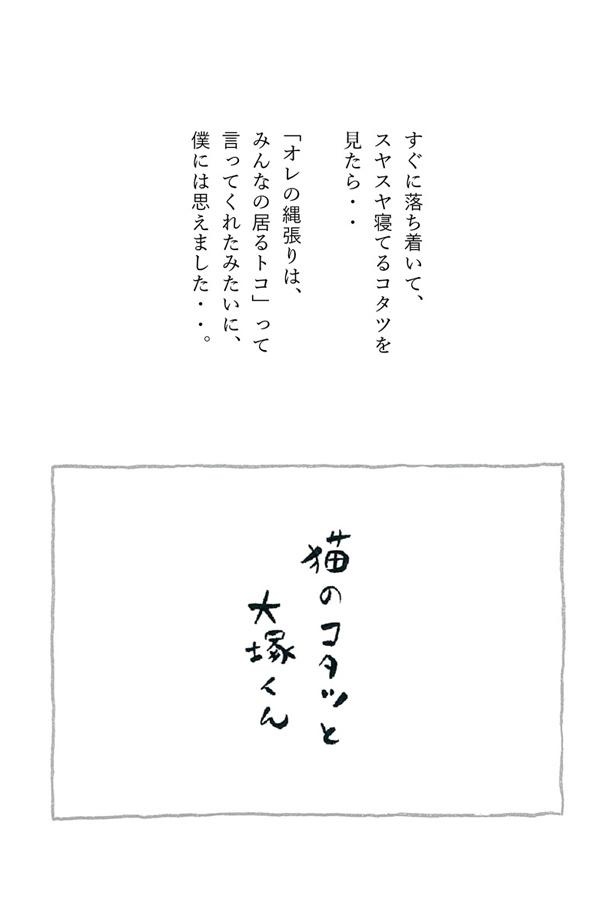 すぐに落ち着いて、
スヤスヤ寝てるコタツを
見たら・・
「オレの縄張りは、
みんなの居るトコ」って
言ってくれたみたいに、
僕には思えました・・。
猫のコタツと
大塚くん